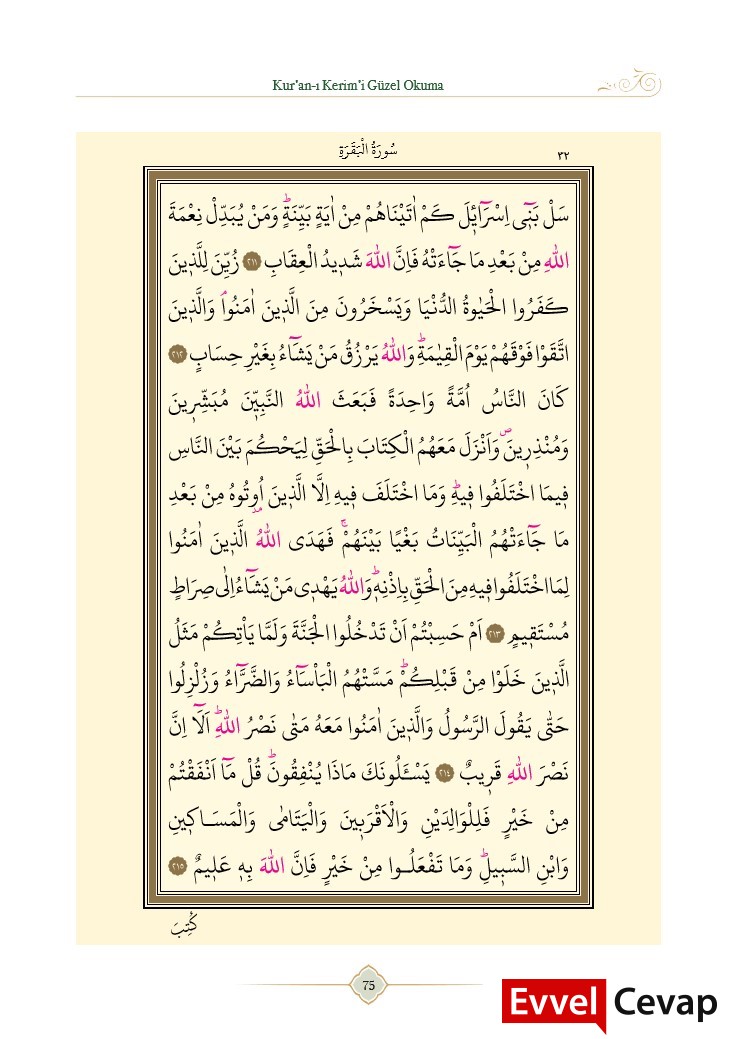 Kur'an-ı Kerim'i Güzel Okuma
سُورَةُ الْبَقَرَةِ
٣٢
سَلْ بَنٖٓي اِسْرَٓائٖلَ كَمْ اٰتَيْنَاهُمْ مِنْ اٰيَةٍ بَيِّنَةٍؕ وَمَنْ يُبَدِّلْ نِعْمَةَ
اللّٰهِ مِنْ بَعْدِ مَا جَٓاءَتْهُ فَاِنَّ اللّٰهَ شَدٖيدُ الْعِقَابِ ٢١١ زُيِّنَ لِلَّذٖينَ
كَفَرُوا الْحَيٰوةُ الدُّنْيَا وَيَسْخَرُونَ مِنَ الَّذٖينَ اٰمَنُواۘ وَالَّذٖينَ
اتَّقَوْا فَوْقَهُمْ يَوْمَ الْقِيٰمَةِؕ وَاللّٰهُ يَرْزُقُ مَنْ يَشَٓاءُ بِغَيْرِ حِسَابٍ ٢١٢
كَانَ النَّاسُ اُمَّةً وَاحِدَةً فَبَعَثَ اللّٰهُ النَّبِيّٖنَ مُبَشِّرٖينَ
وَمُنْذِرٖينَࣕ وَاَنْزَلَ مَعَهُمُ الْكِتَابَ بِالْحَقِّ لِيَحْكُمَ بَيْنَ النَّاسِ
فٖيمَا اخْتَلَفُوا فٖيهِؕ وَمَا اخْتَلَفَ فٖيهِ اِلَّا الَّذٖينَ اُو۫تُوهُ مِنْ بَعْدِ
مَا جَٓاءَتْهُمُ الْبَيِّنَاتُ بَغْيًا بَيْنَهُمْۚ فَهَدَى اللّٰهُ الَّذٖينَ اٰمَنُوا
لِمَا اخْتَلَفُوا فٖيهِ مِنَ الْحَقِّ بِاِذْنِهٖؕ وَاللّٰهُ يَهْدٖي مَنْ يَشَٓاءُ اِلٰى صِرَاطٍ
مُسْتَقٖيمٍ ٢١٣ اَمْ حَسِبْتُمْ اَنْ تَدْخُلُوا الْجَنَّةَ وَلَمَّا يَأْتِكُمْ مَثَلُ
الَّذٖينَ خَلَوْا مِنْ قَبْلِكُمْؕ مَسَّتْهُمُ الْبَأْسَٓاءُ وَالضَّرَّٓاءُ وَزُلْزِلُوا
حَتّٰى يَقُولَ الرَّسُولُ وَالَّذٖينَ اٰمَنُوا مَعَهُ مَتٰى نَصْرُ اللّٰهِؕ اَلَٓا اِنَّ
نَصْرَ اللّٰهِ قَرٖيبٌ ٢١٤ يَسْـَٔلُونَكَ مَاذَا يُنْفِقُونَؕ قُلْ مَٓا اَنْفَقْتُمْ
مِنْ خَيْرٍ فَلِلْوَالِدَيْنِ وَالْاَقْرَبٖينَ وَالْيَتَامٰى وَالْمَسَاكٖينِ
وَابْنِ السَّبٖيلِؕ وَمَا تَفْعَلُوا مِنْ خَيْرٍ فَاِنَّ اللّٰهَ بِهٖ عَلٖيمٌ ٢١٥
كُتِبَ
75
Evvel Cevap